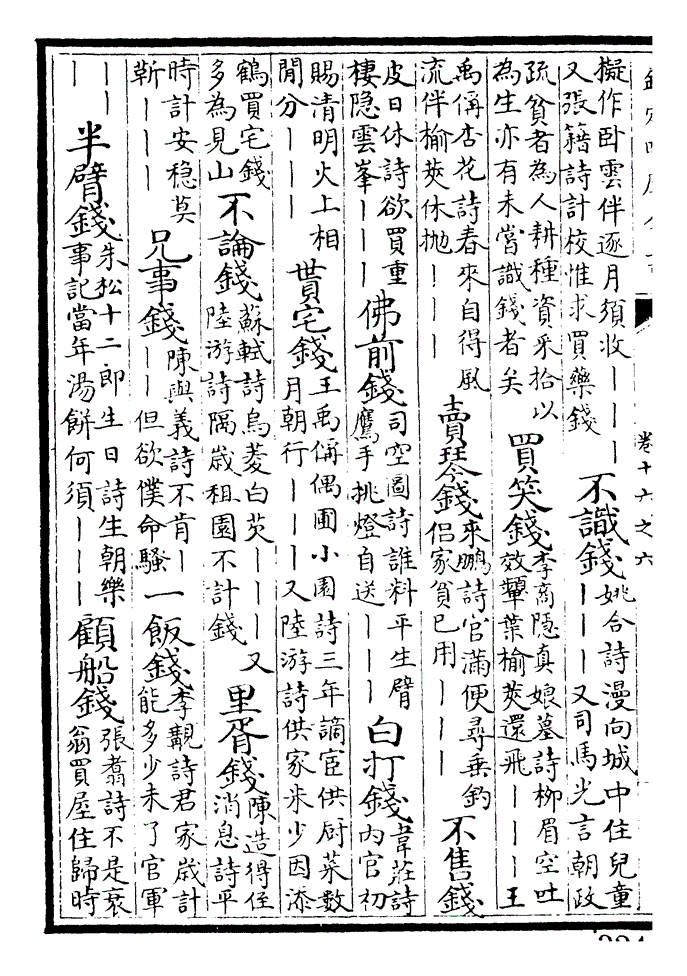 卷十六之六
擬作卧雲伴逐月須收｜｜｜又張籍詩計校惟求買藥錢 不識錢 姚合詩漫向城中住兒童｜｜｜又司馬光言朝政
疏貧者為人耕種資采拾以為生亦有未嘗識錢者矣 買笑錢 李商隱真娘墓詩柳眉空吐效顰葉榆莢還飛｜｜｜王
禹偁杏花詩春來自得風流伴榆莢休抛｜｜｜ 賣琴錢 來鵬詩官滿便尋垂釣侣家貧已用｜｜｜ 不售錢
皮日休詩欲買重樓隐雲峯｜｜｜ 佛前錢 司空圖詩誰料平生臂鷹手挑燈自送｜｜｜ 白打錢 韋莊詩内官初
賜清明火上相閒分｜｜｜ 貰宅錢 王禹偁偶圃小園詩三年謫宦供厨菜數月朝行｜｜｜又陸游詩供家米少因添
鶴買宅錢多為見山 不論錢 蘇軾詩烏菱白芡｜｜｜又陸游詩隔歲租園不計錢 里胥錢 陳造得侄消息詩平
時計安穏莫靳｜｜｜ 兄事錢 陳與義詩不肯｜｜｜但欲僕命騷 一飯錢 李覯詩君家歲計能多少未了官軍
｜｜｜ 半臂錢 朱松十二郎生日詩生朝樂事記當年湯餅何須｜｜｜ 顧船錢 張翥詩不是衰翁買屋住歸時